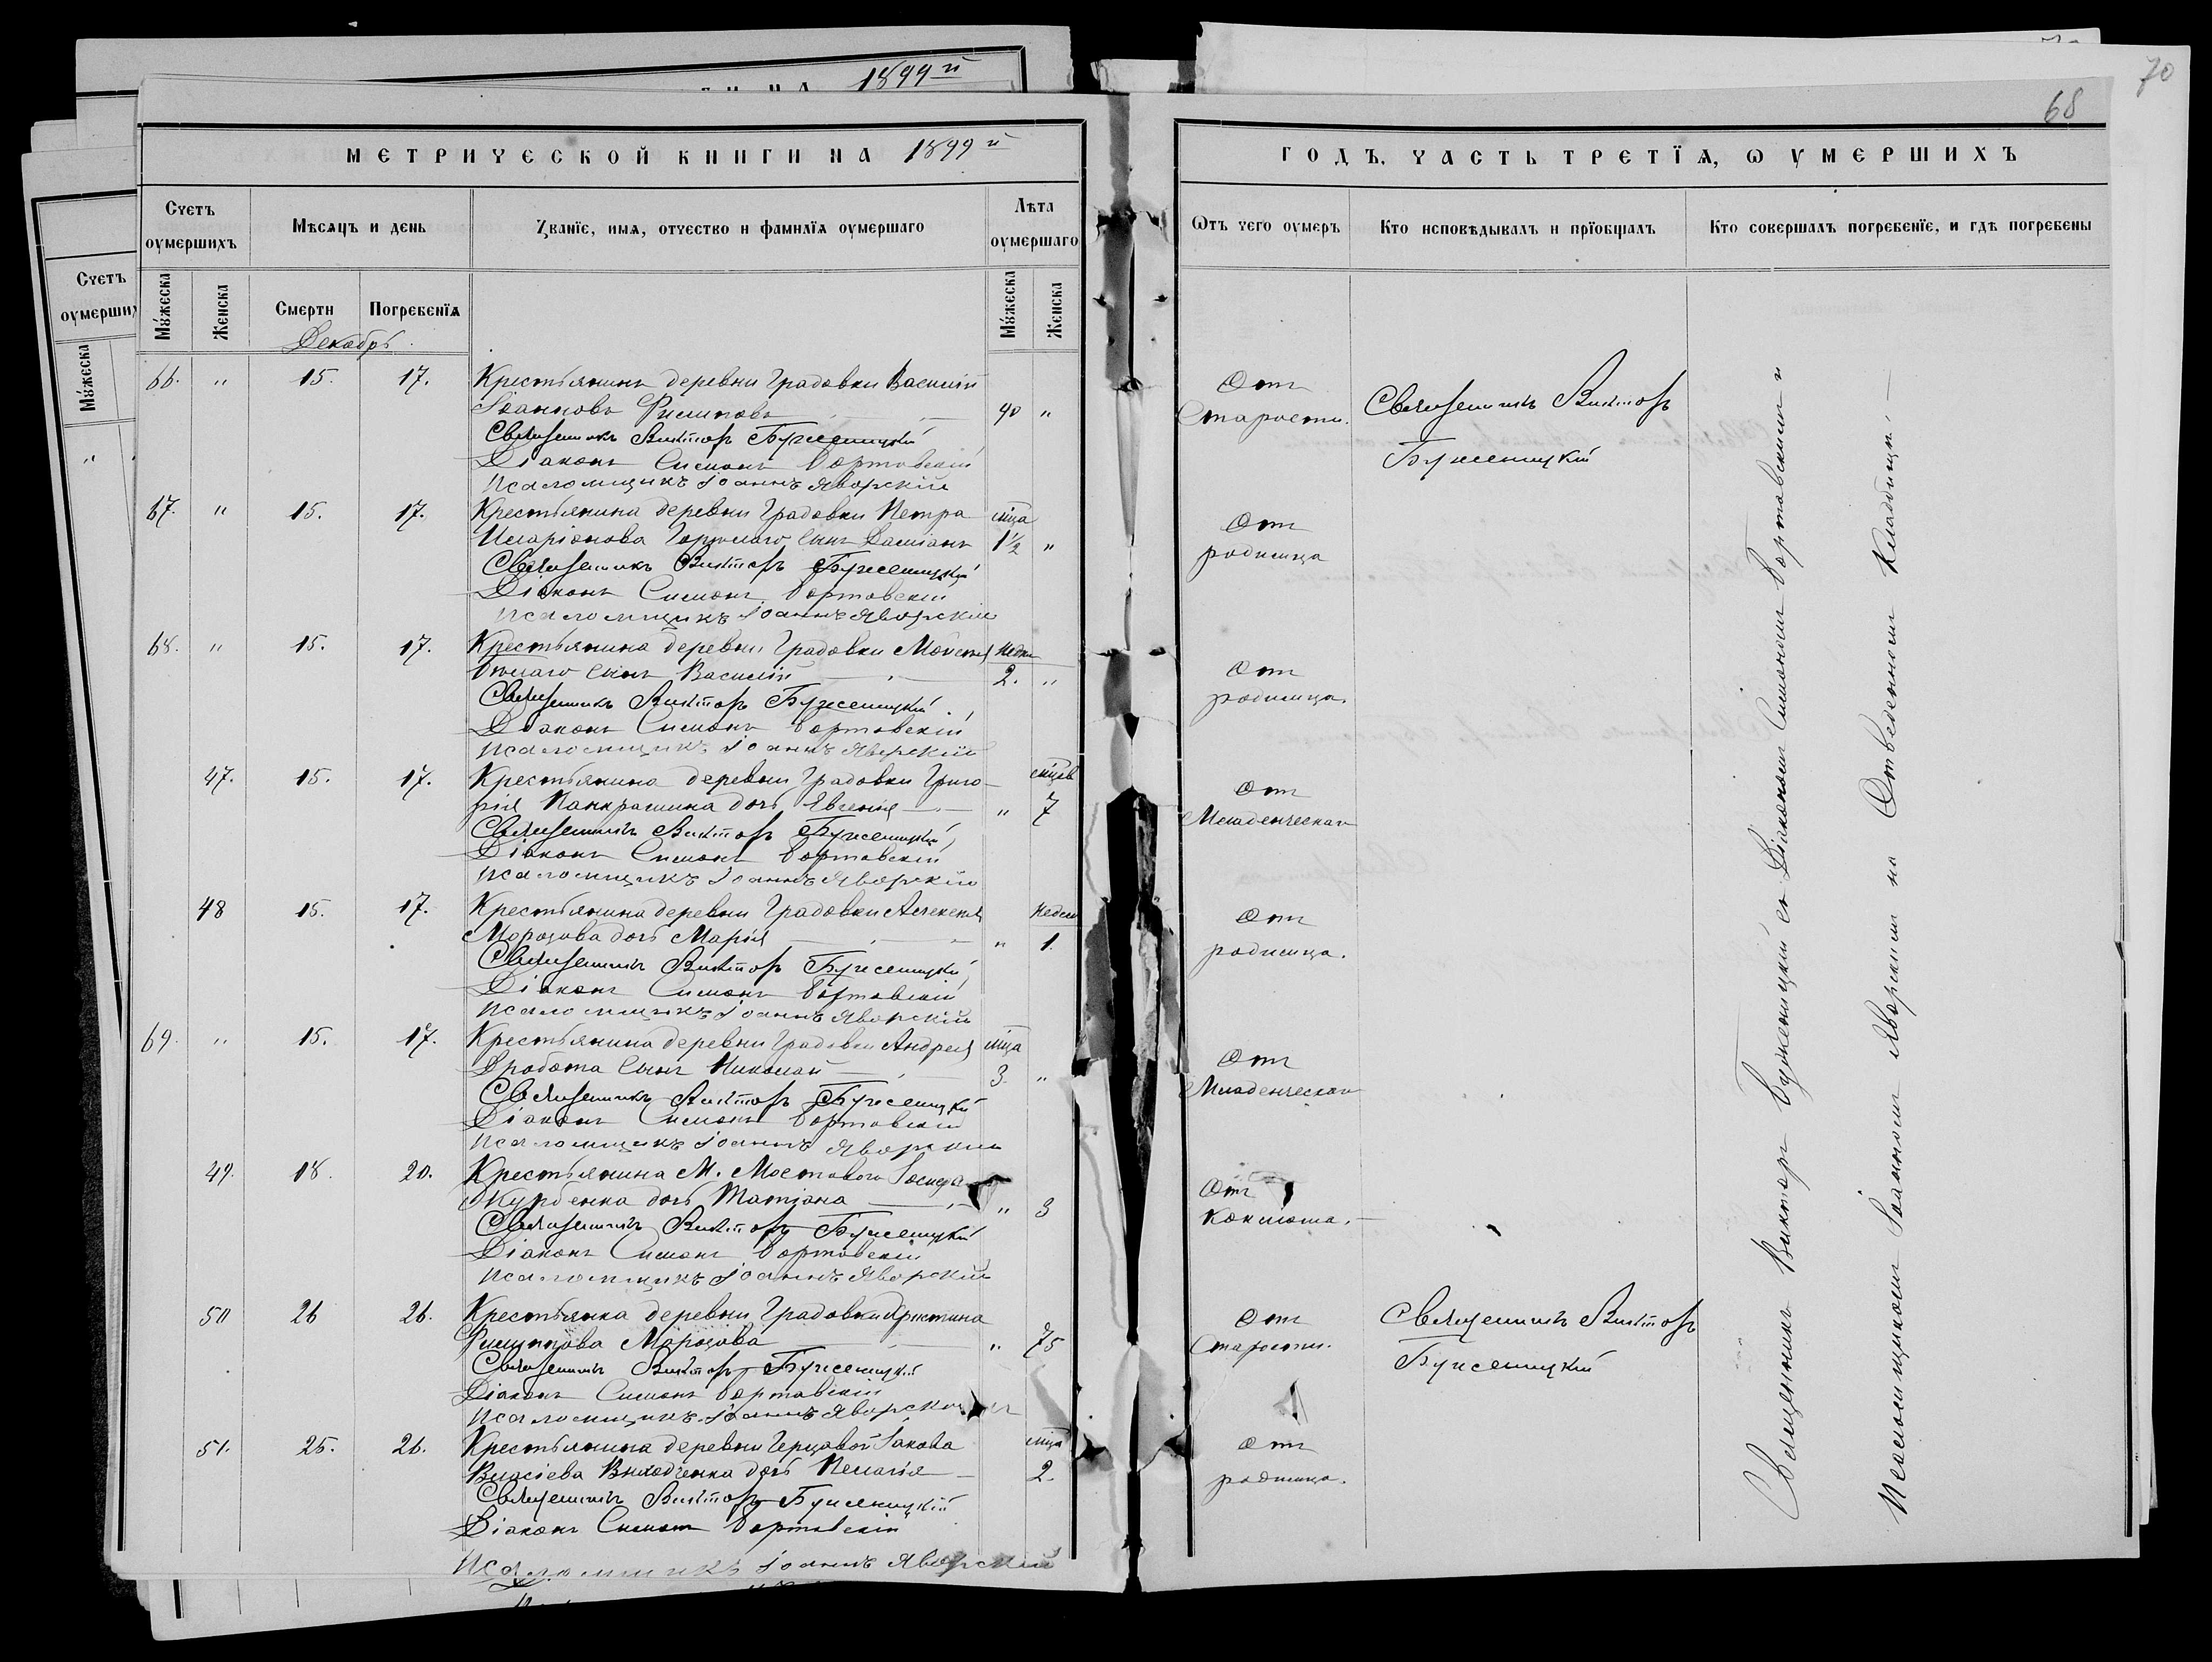 1899 й
70
68
МЕТРИЧЕСКОЙ КНИГИ НА 1899 й
ГОДЪ, ЧАСТЬ ТРЕТЇѦ, Ѡ ОУМЕРШИХЪ
Счетъ оумершихъ
Мѣсѧцъ и день
Званїе, имѧ, отчество и фамилїѧ оумершаго
Лѣта оумершаго
Ѿтъ чего оумеръ
Кто исповѣдывалъ и прїобщалъ
Кто совершалъ погребенїе, и гдѣ погребены
Счетъ
Мꙋжеска
Женска
Смерти
Погребенїѧ
Мꙋжеска
Женска
Мꙋжеска
Декабрь.
66. " 15. 17. Крестьянинъ деревни Градовки Василій
Іоанновъ Филиповъ 90 "
Отъ
Старости.
Священникъ Викторъ
Буженицкій
Священникъ Викторъ Буженицкій
Діаконъ Симонъ Бортовскій
Псаломщикъ Іоаннъ Яворскій
67. " 15. 17. Крестьянина деревни Градовки Петра мца
Иларіонова сынъ Даміанъ 1½ "
Отъ
родимца
Священникъ Викторъ Буженицкій
Діаконъ Симонъ Бортовскій
Псаломщикъ Іоаннъ Яворскій
68. " 15. 17. Крестьянина деревни Градовки Моисея недѣли
сынъ Василій 2. "
Отъ
родимца.
Священникъ Викторъ Буженицкій
Діаконъ Симонъ Бортовскій
Псаломщикъ Іоаннъ Яворскій
47. 15. 17. Крестьянина деревни Градовки Григо- мцев
рія Панкратина дочь Евгенія " 7
Отъ
Младенческой
Священникъ Викторъ Буженицкій
Діаконъ Симонъ Бортовскій
Псаломщикъ Іоаннъ Яворскій
48 15. 17. Крестьянина деревни Градовки Алексея недели
Морозова дочь Марія " 1.
Отъ
родимца.
Священникъ Викторъ Буженицкій
Діаконъ Симонъ Бортовскій
Псаломщикъ Іоаннъ Яворскій
69. " 15. 17. Крестьянина деревни Градовки Андрея мца
Дробота сынъ Николай 3. "
Отъ
Младенческой
Священникъ Викторъ Буженицкій
Діаконъ Симонъ Бортовскій
Псаломщикъ Іоаннъ Яворскій
49. 18. 20. Крестьянина М. Мостового Іосифа
дочь Татіана " 3
Отъ
Коклюша.
Священникъ Викторъ Буженицкій
Діаконъ Симонъ Бортовскій
Псаломщикъ Іоаннъ Яворскій
50 26 26. Крестьянка деревни Градовки Христина
Филиппова Морозова " 75
Отъ
Старости.
Священникъ Викторъ
Буженицкій
Священникъ Викторъ Буженицкій
Діаконъ Симонъ Бортовскій
Псаломщикъ Іоаннъ Яворскій
51. 25. 26. Крестьянина деревни Герцовой Іакова мца
Власіева Выходченка дочь Пелагія 2.
Отъ
родимца.
Священникъ Викторъ Буженицкій
Діаконъ Симонъ Бортовскій
Псаломщикъ Іоаннъ Яворскій
Священникъ Викторъ Буженицкій съ Діакономъ Симономъ Бортовскимъ и
Псаломщикомъ Іоанномъ Яворскимъ на Отведенномъ Кладбищѣ.